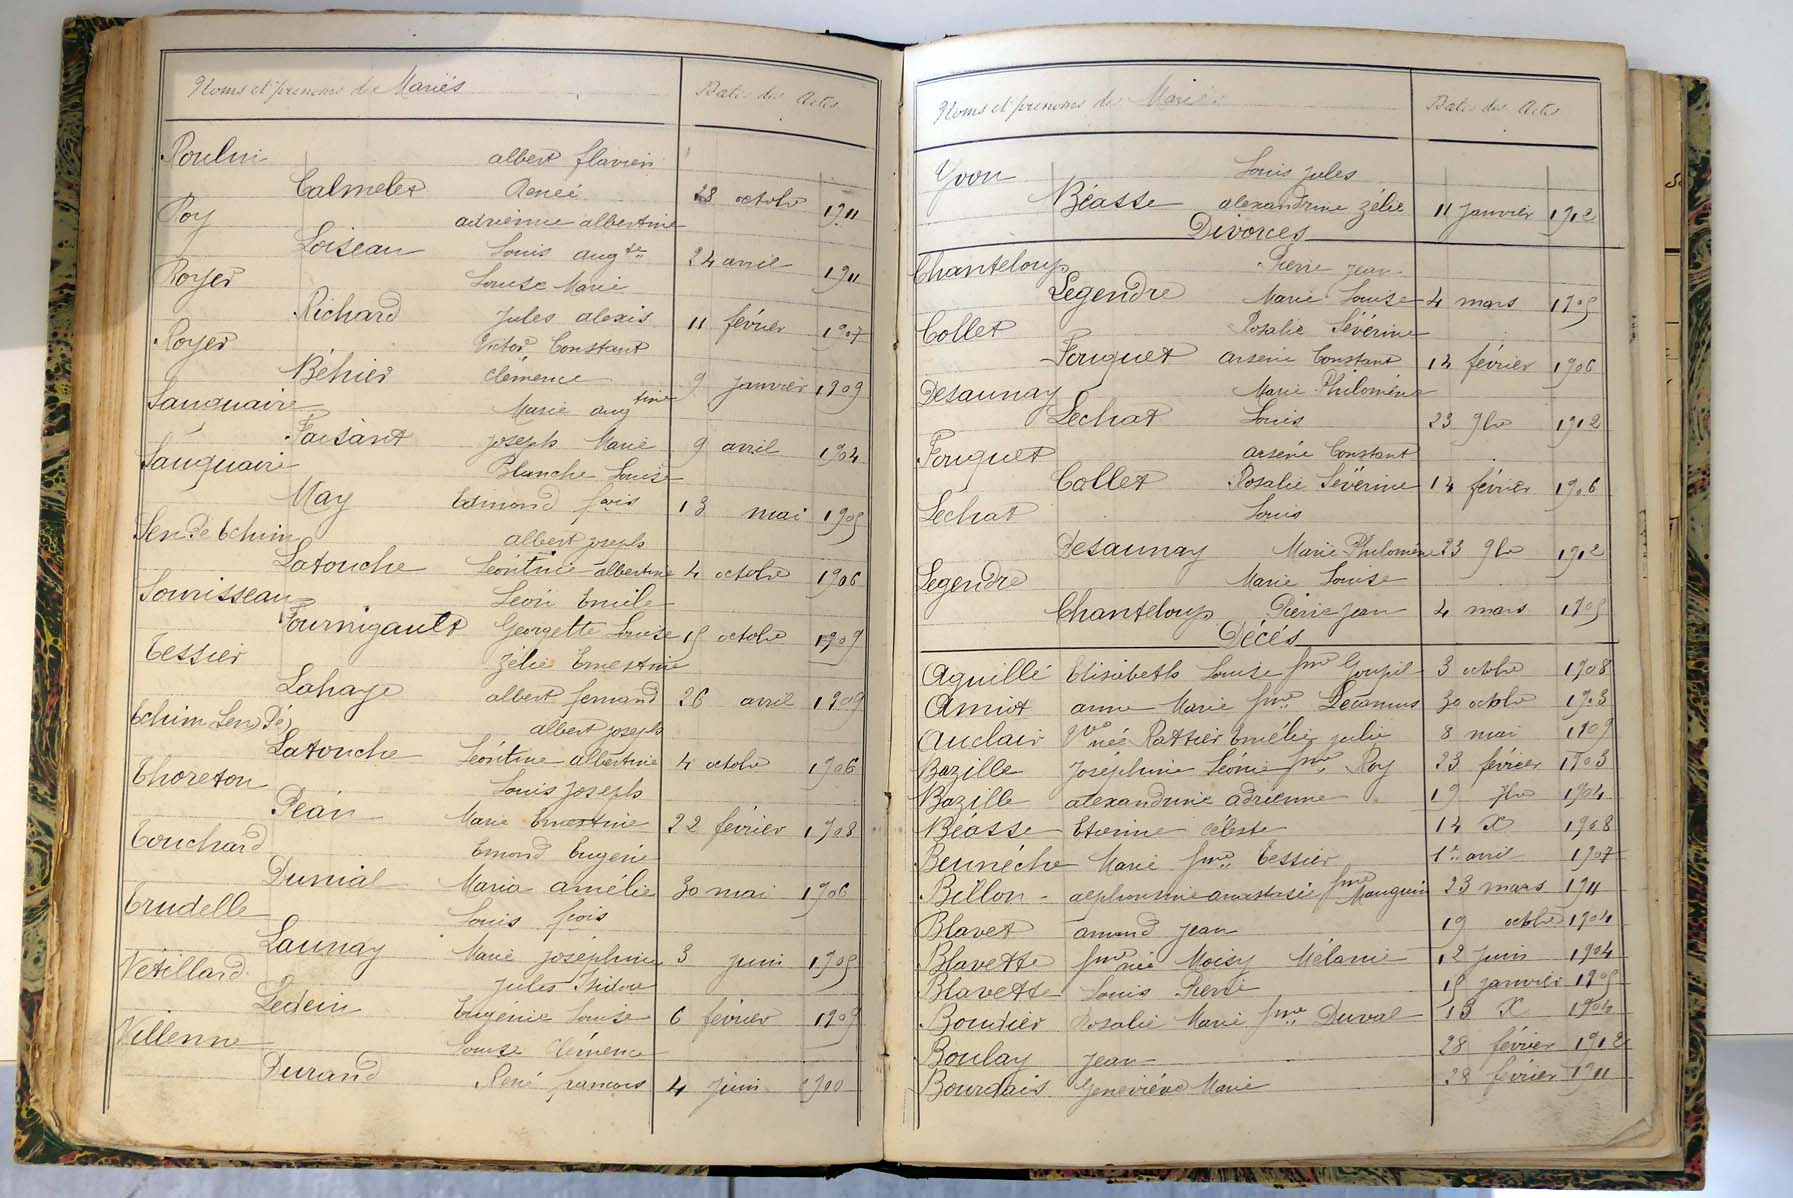 Noms et prenoms de Mariés Dates des Actes
albert flavien
Calmeles Renée 28 octobre 1911
Roy adrienne albertine
Loiseau Louis aug te 24 avril 1911
Royer Louise Marie
Richard Jules alexis 11 février 1907
Royer Victor Constant
Béhier clémence 9 janvier 1909
Sauquaire Marie aug tine
Faisant joseph Marie 9 avril 1904
Sauquaire Blanche Louise
May Edmond fçois 13 mai 1905
Sen De Echim albert joseph
Latouche Léontine albertine 4 octobre 1906
Sourisseau Léon Emile
Fournigault Georgette Louise 15 octobre 1909
Tessier Zélie Ernestine
Lahaye albert fernand 26 avril 1909
Echim Sen Dé albert joseph
Latouche Léontine albertine 4 octobre 1906
Thoreton Louis joseph
Péan Marie Ernestine 22 février 1908
Touchard Emond Eugène
Maria amélie 30 mai 1906
Trudelle Louis fçois
Launay Marie joséphine 3 juin 1905
Vetillard Jules Isidore
Ledein Eugénie Louise 6 février 1909
Villenne Louise Clémence
Durand René françois 4 juin 1900
Noms et prenoms de Mariés Dates des Actes
Yvon Louis jules
Béasse alexandrine Zélie 11 janvier 1912
Divorces
Chanteloup Pierre jean
Legendre Marie Louise 4 mars 1905
Collet Rosalie Séverine
Fouquet arsène Constant 14 février 1906
Desaunay Marie Philomène
Lechat Louis 23 9bre 1912
Fouquet arsène Constant
Collet Rosalie Séverine 14 février 1906
Lechat Louis
Desaunay Marie Philomène 23 9bre 1912
Legendre Marie Louise
Chanteloup Pierre jean 4 mars 1905
Décés
Aguillé Elisabeth Louise fme Goupil 3 octobre 1908
Amiot anne Marie fme Decamus 30 octobre 1903
Auclair Vve née Rattier Emélie julie 8 mai 1909
Bazille Joséphine Léonie fme Roy 23 février 1903
Bazille alexandrine adrienne 19 7bre 1904
Béasse Etienne Céleste 14 X 1908
Beunéche Marie fme Tessier 1er avril 1907
Billon alphonsine anastasie fme Mauguin 23 mars 1911
Blavet amand Jean 19 octobre 1904
Blavette fme née Moisy Mélanie 12 juin 1904
Blavette Louis Pierre 15 janvier 1905
Boudier Rosalie Marie fme Duval 13 X 1904
Boulay Jean 28 février 1912
Bourdais Geneviève Marie 28 février 1911